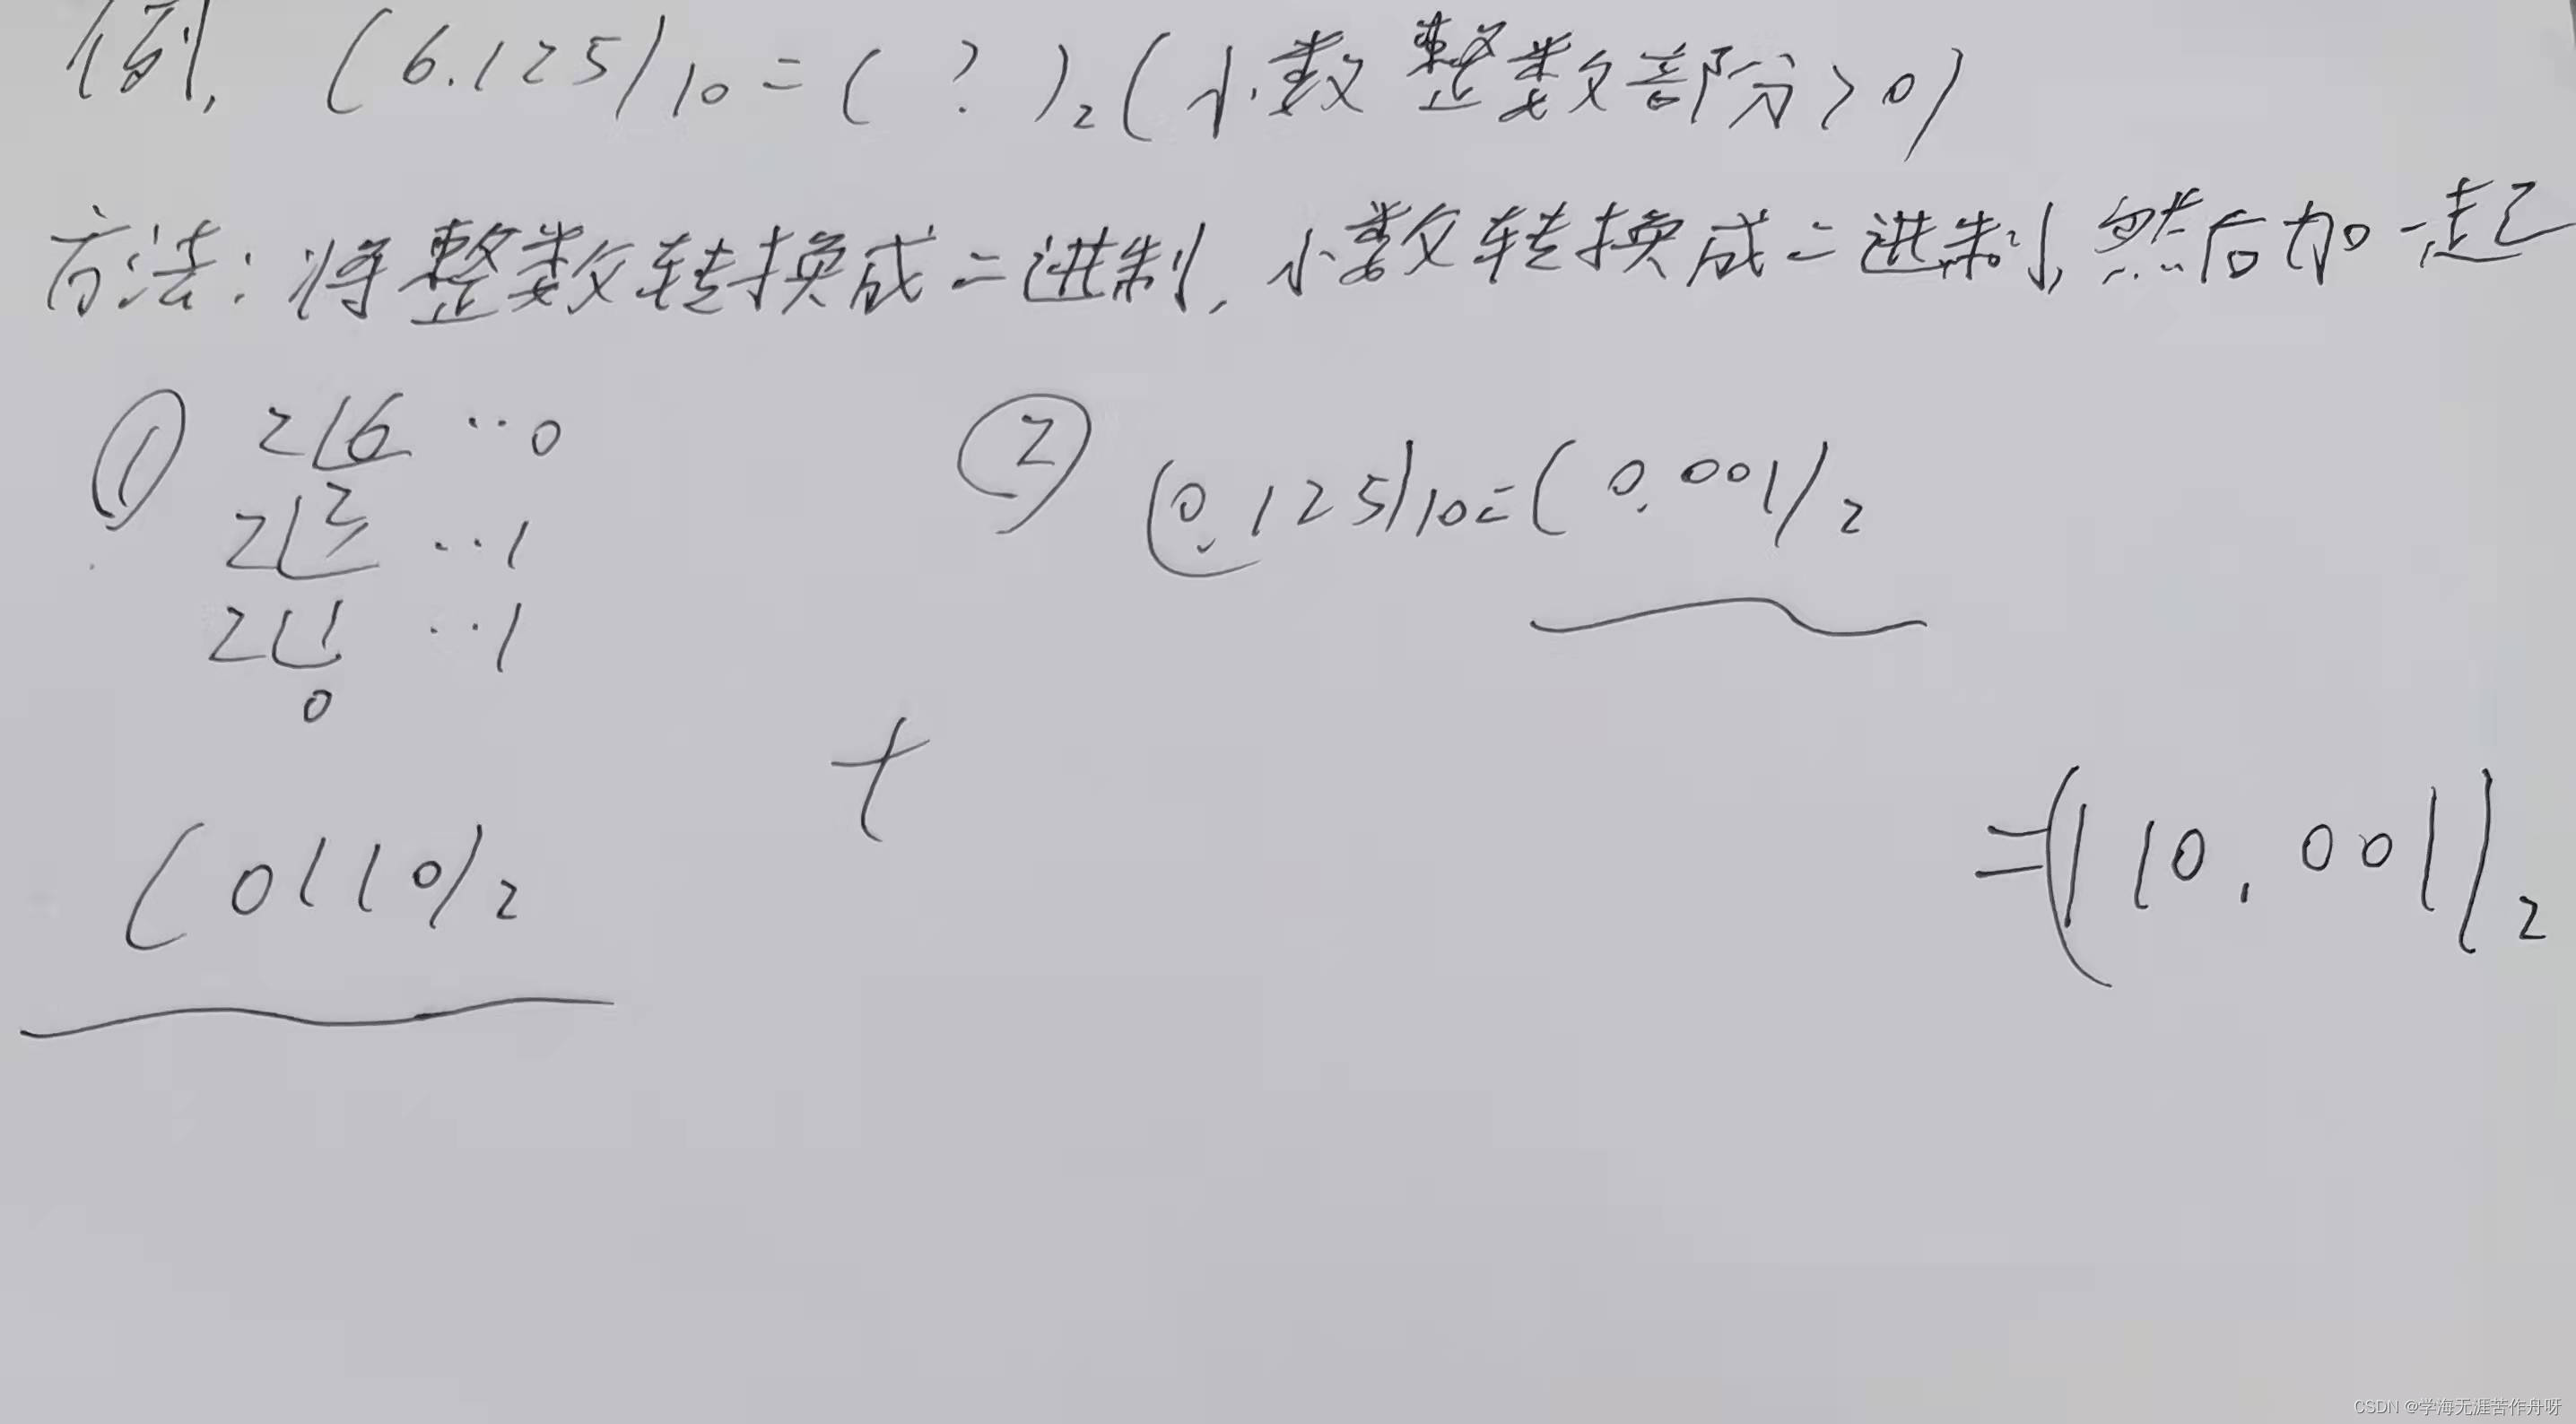 例, (6.125)10=(?)2(小数整数部分>0)
方法:将整数转换成二进制,小数转换成二进制,然后加一起
① 2⌊6 ··0
2⌊3 ··1
2⌊1 ··1
0
② (0.125)10=(0.001)2
(0110)2 + =(110.001)2
CSDN @学海无涯苦作舟呀